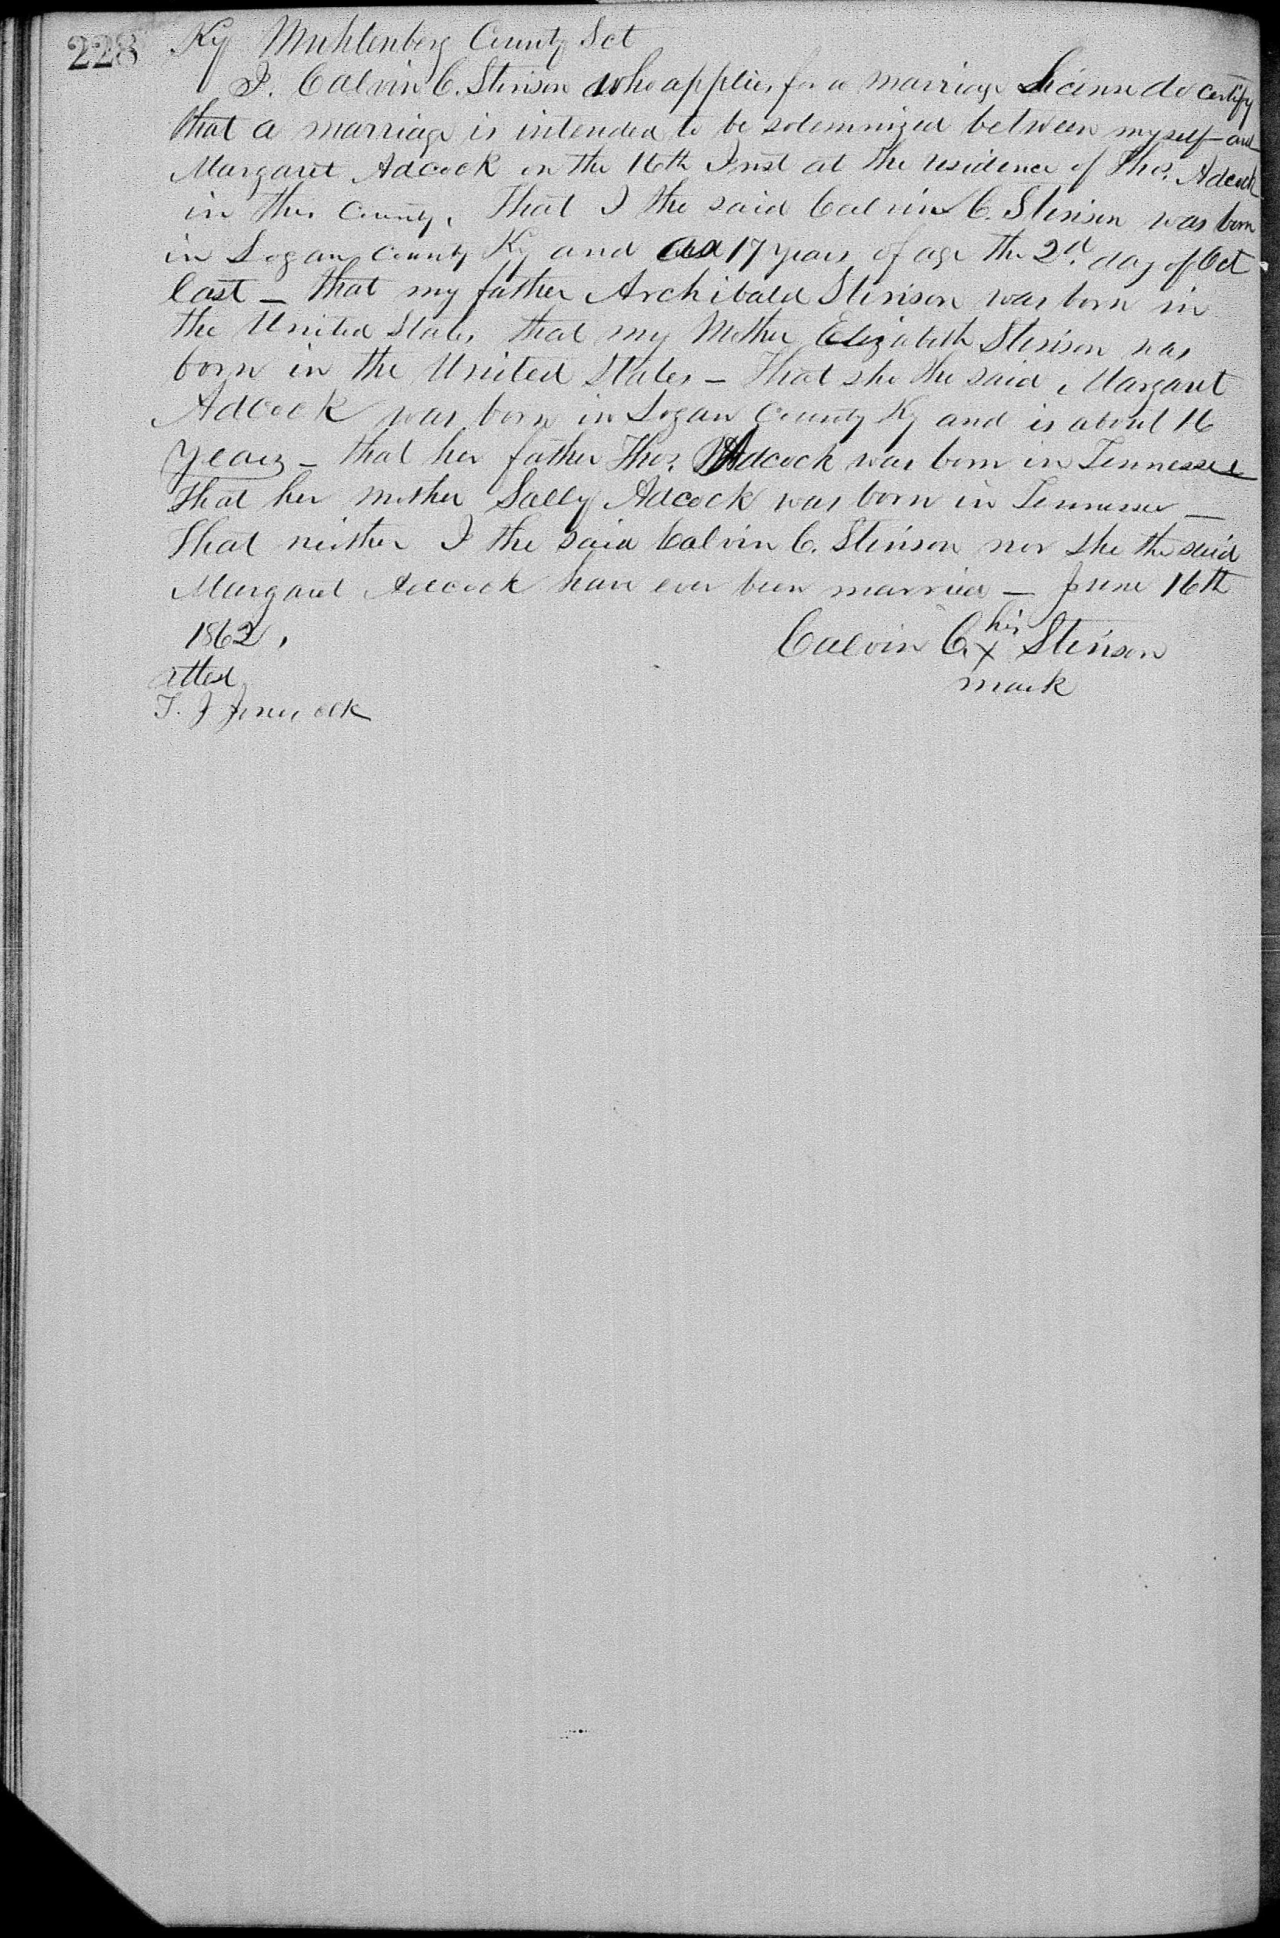 228
Ky Muhlenberg County Sct
I. Calvin C. Stinson who applies for a marriage Licinse do certify
that a marriage is intended to be solemnized between myself and
Margaret Adcock on the 16th Inst at the residence of Thos. Adcock
in this County, That I the said Calvin C. Stinson was born
in Logan County Ky and was 17 years of age the 2d. day of Oct
last - that my father Archibald Stinson was born in
the United States that my Mother Elizabeth Stinson was
born in the United States - That she the said Margaret
Adcock was born in Logan County Ky and is about 16
years - that her father Thos. Adcock was born in Tennessee
that her mother Sally Adcock was born in Tennessee -
That neither I the said Calvin C. Stinson nor she the said
Margaret Adcock have ever been married - June 16th
1862,
Calvin C. his x Stinson
mark
attest
T. J Jones clk